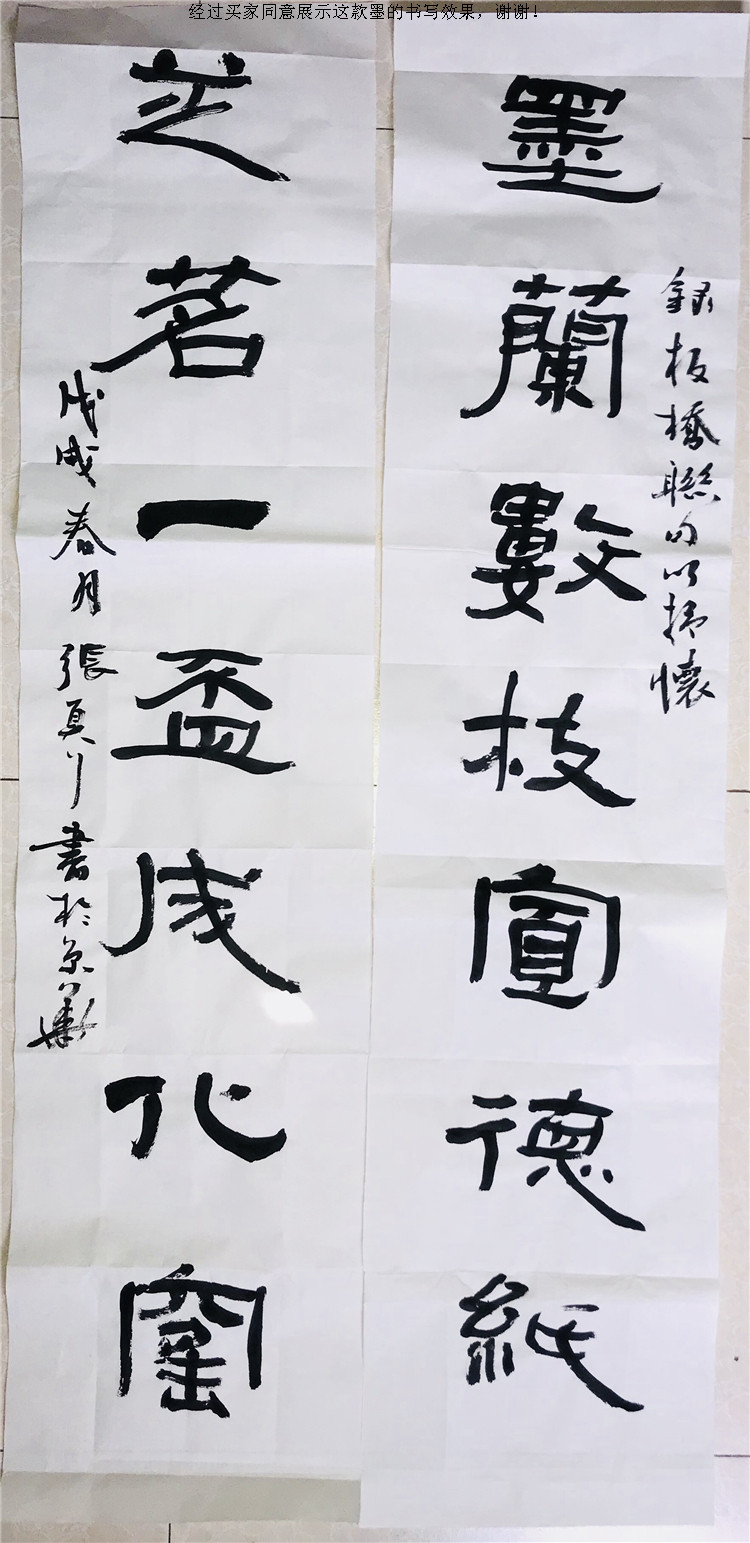 经过买家同意展示这款墨的书写效果，谢谢！
録板橋聯句以抒懷
墨蘭數枝宣德紙
芝茗一盃成化窰
戊戌春月張真
書於京華